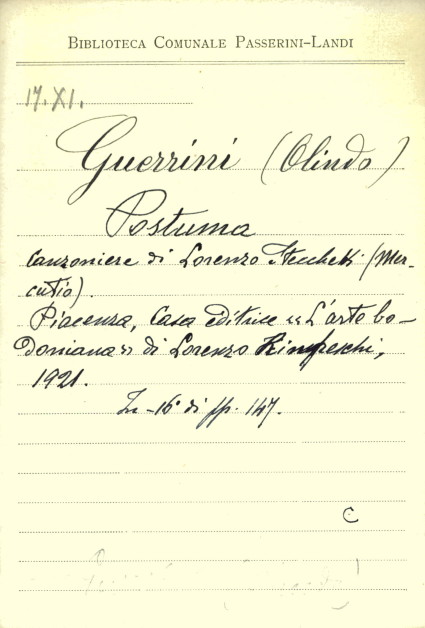 BIBLIOTECA COMUNALE PASSERINI-LANDI
17. XI.
Guerrini (Olindo)
Postuma
Canzoniere di Lorenzo Stecchetti (Mer-
cutio).
Piacenza, Casa editrice «L'arte bo-
doniana» di Lorenzo
1921.
In-16° di pp. 147.
C